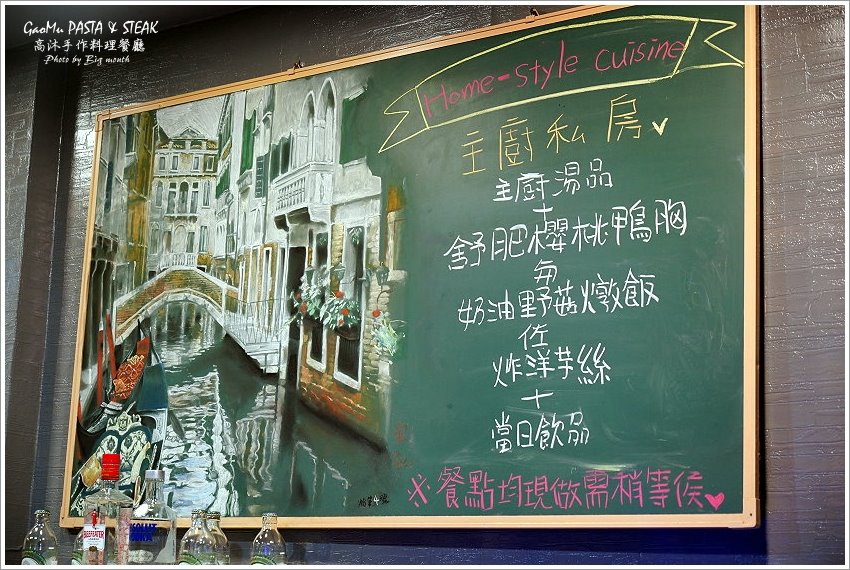 GaoMu PASTA & STEAK
高沐手作料理餐廳
Photo by Big mouth
Home-style cuisine
主廚私房
主廚湯品
+
舒肥櫻桃鴨胸
&
奶油野菇燉飯
佐
炸洋芋絲
+
當日飲品
※餐點均現做需稍等候♥
BEEFEATER
ABSOLUT
VODKA